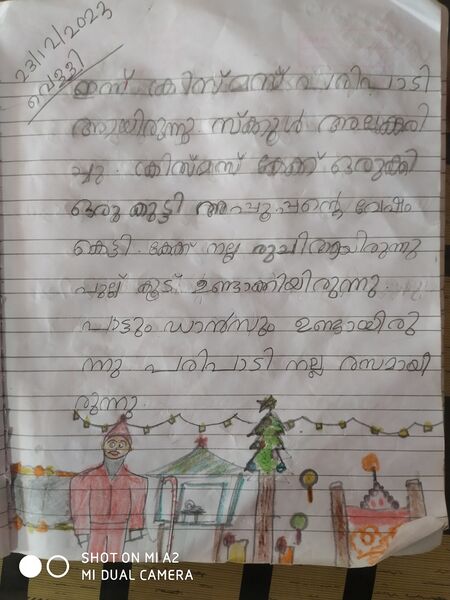 23/12/2023
വെള്ളി
ഇന്ന് ക്രിസ്മസ് പരിപാടി
ആയിരുന്നു. സ്കൂൾ അലങ്കരി
ച്ചു. ക്രിസ്മസ് കേക്ക് ഒരുക്കി
ഒരു കുട്ടി അപ്പൂപ്പൻ്റെ വേഷം
കെട്ടി. കേക്ക് നല്ല രുചിയായിരുന്നു
പുല്ല് കൂട് ഉണ്ടാക്കിയിരുന്നു.
പാട്ടും ഡാൻസും ഉണ്ടായിരു
ന്നു പരിപാടി നല്ല രസമായി
രുന്നു.
SHOT ON MI A2
MI DUAL CAMERA